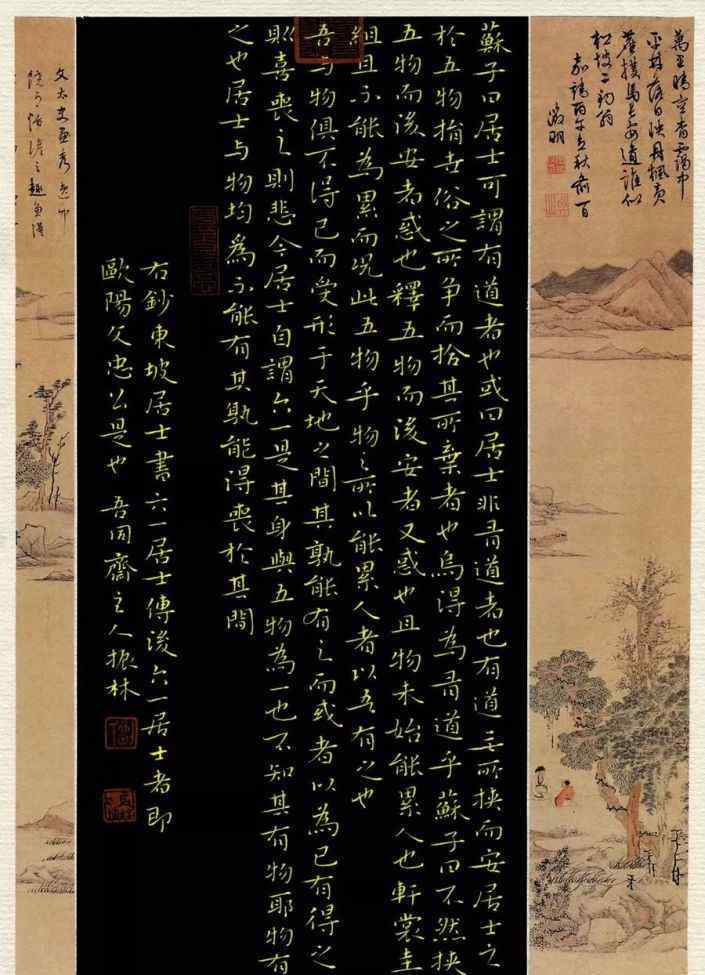 萬里晴空杳靄中
平林落日映丹楓
徵明
蘇子曰居士可謂有道者也或曰居士非㝵道者也有道无所挾而安居士之
於五物捐世俗之所争而拾其所棄者也烏得為㝵道乎蘇子曰不然挾
五物而後安者惑也釋五物而後安者又惑也且物未始能累人也軒裳圭
組且不能為累而况此五物乎物之所以能累人者以吾有之也
吾与物俱不得已而受形于天地之間其孰能有之而或者以為己有得之
則喜喪之則悲今居士自謂六一是其身與五物為一也不知其有物耶物有
之也居士与物均為不能有其孰能得喪於其間
右鈔東坡居士書六一居士傳後六一居士者即
歐陽文忠公是也 吾同齋主人振林